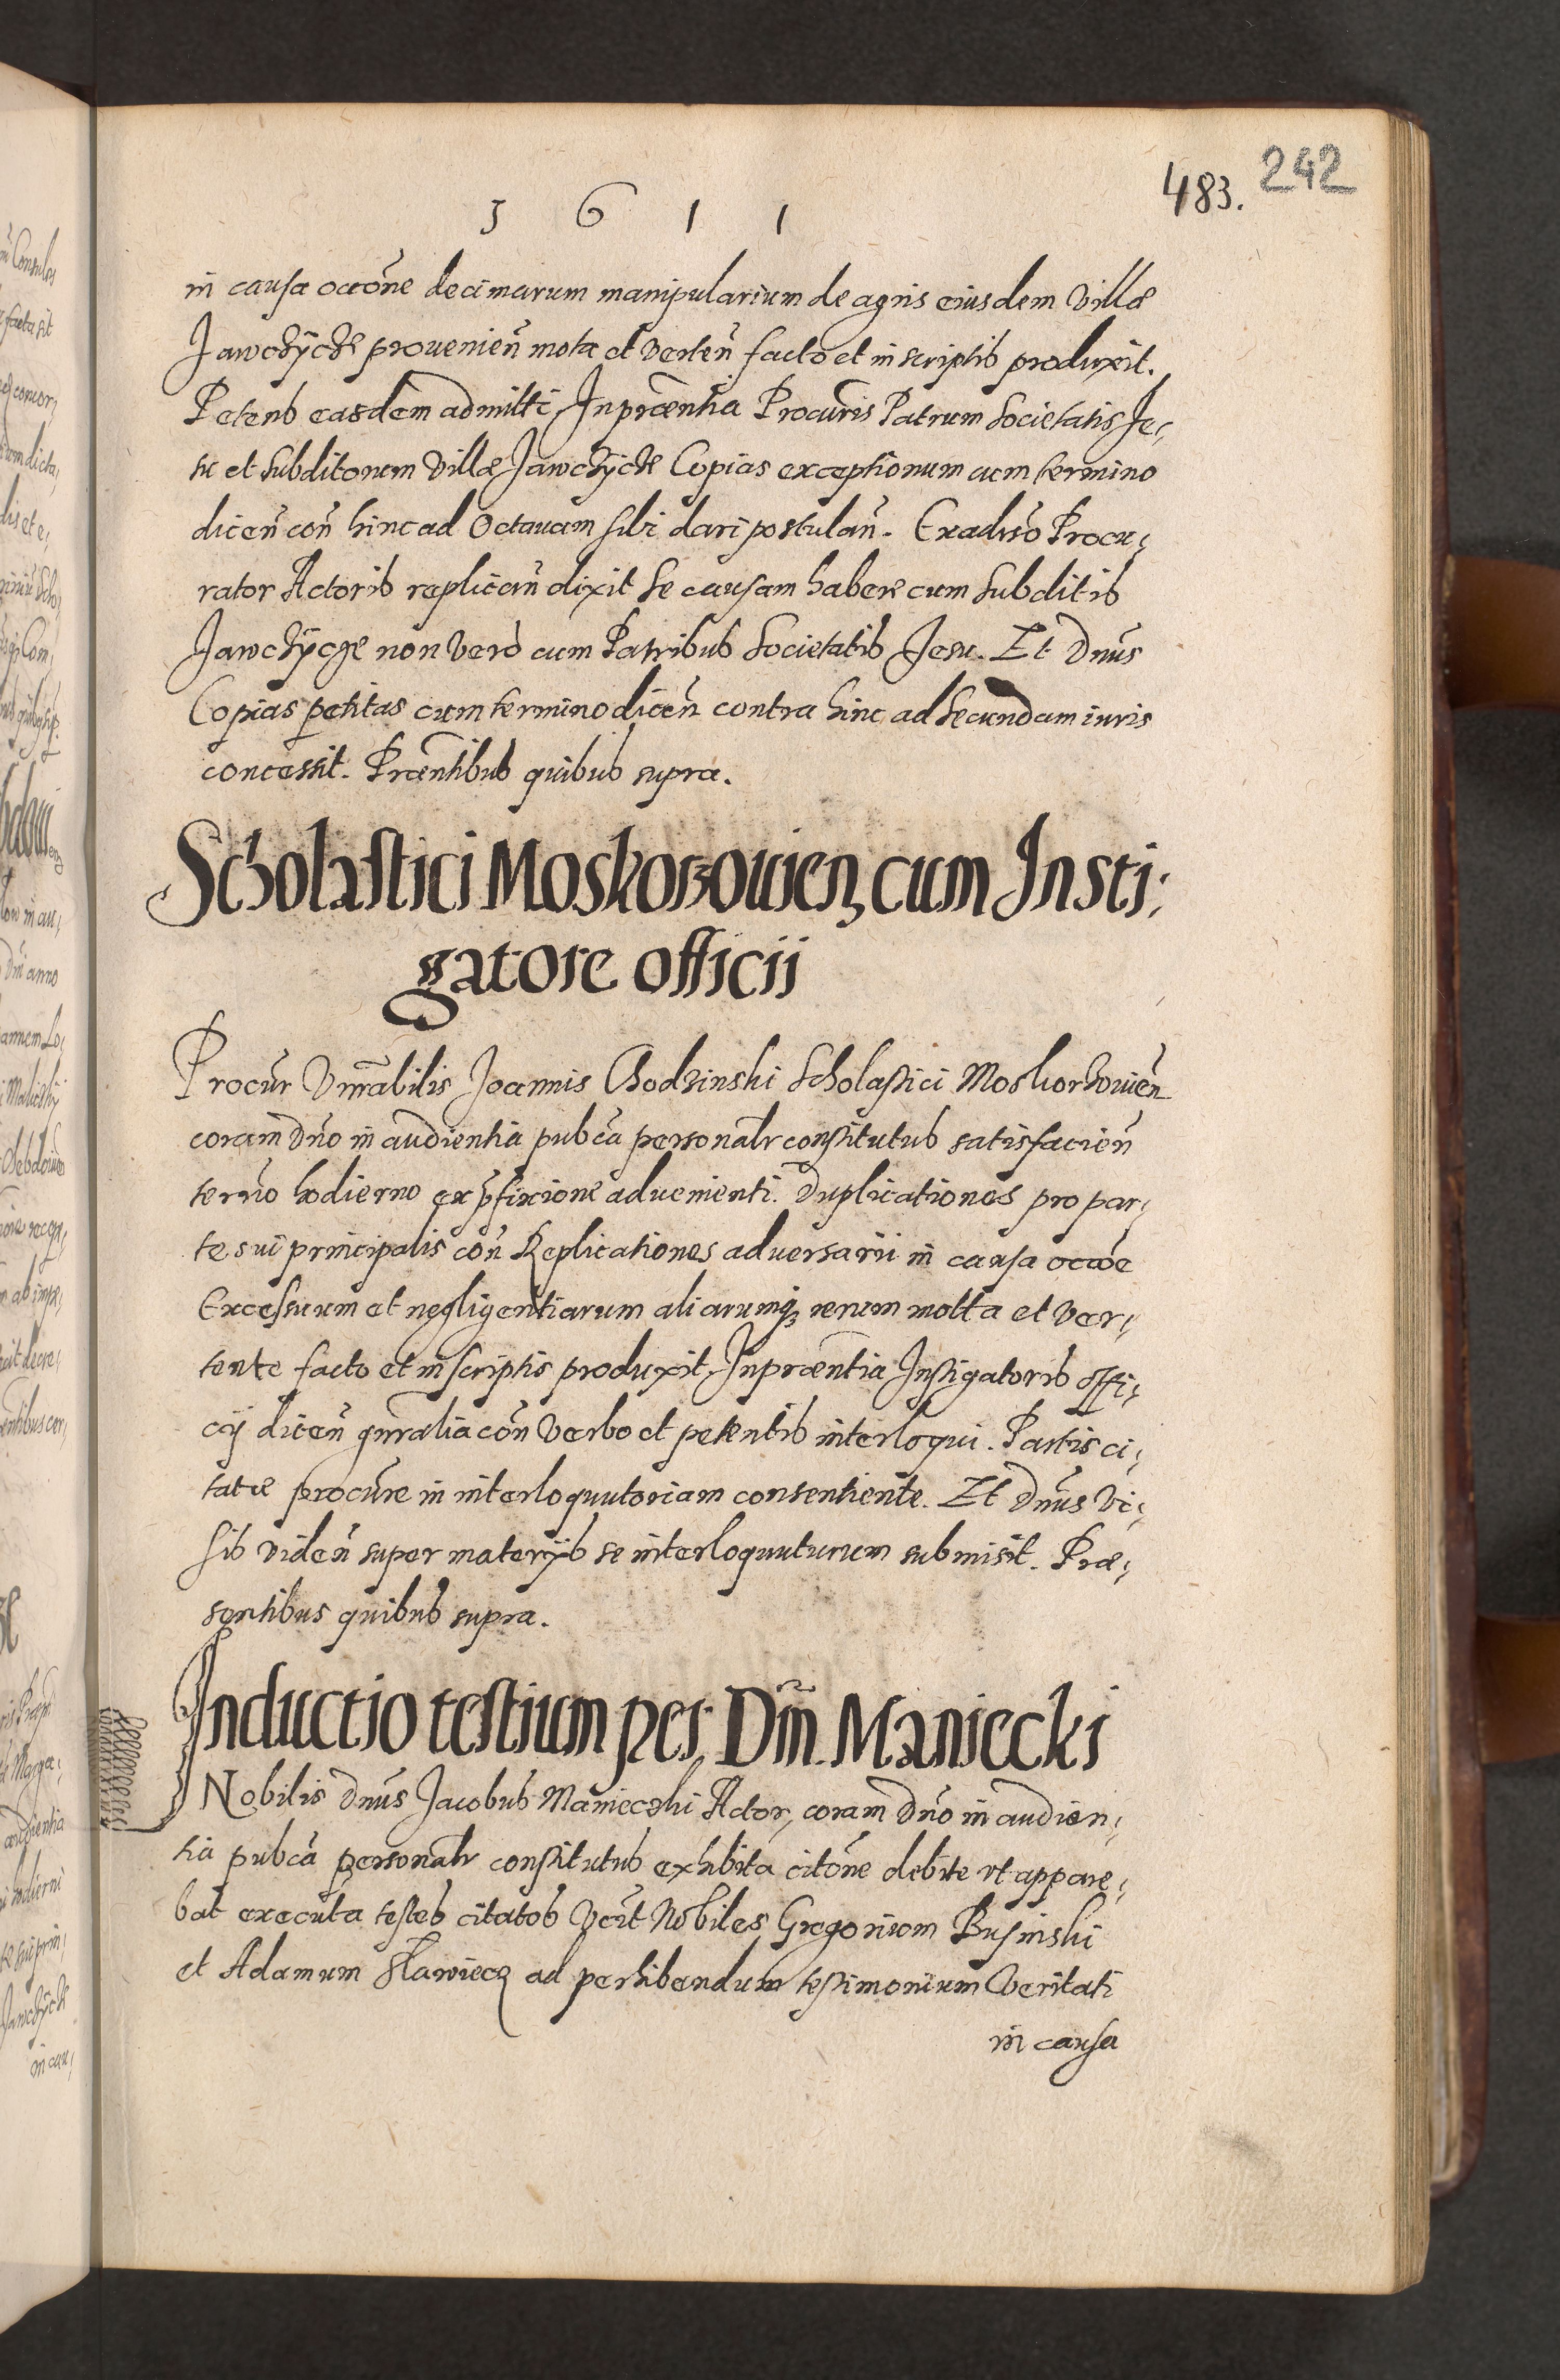 483. 242
1 6 1 1
in causa occõne decimarum manipularium de agris eiusdem Villæ
Jawczÿcze prouenien̄ mota et verten̄ facto et in scriptis produxit.
Petens easdem admitti. In præñtia Procuris Patrum Societatis Je,
su et subditorum villæ Jawczÿcze Copias exceptionum cum termino
dicen̄ con̄ hinc ad Octauam sibi dari postulan̄. Ex aduso Procu,
rator Actoris replican̄ dixit se causam habere cum subditis
Jawczÿcze non vero cum Patribus Societatis Jesu. Et Dnus
Copias petitas cum termino dicen̄ contra hinc ad secundam iuris
concessit. Præñtibus quibus supra.
Scholastici Moskorzouien̄ cum Insti,
gatore officii
Procur̄ Vnrabilis Joannis Chodzinski Scholastici Moskorzouien̄
coram Dño in audientia pubca personalr constitutus satisfacien̄
termo hodierno ex pfixione aduenienti. Duplicationes pro par,
te sui principalis con̄ Replicationes aduersarii in causa occõe
Excessuum et negligentiarum aliarumq; rerum motta et ver,
tente facto et in scriptis produxit. In præñtia Instigatoris offi,
cÿ dicen̄ gnralia con̄ verbo et petentis interloqui. Partis ci,
tatæ procure in interloquutoriam consentiente. Et Dnus vi,
sis viden̄ super materÿs se interloquuturum submisit. Præ,
sentibus quibus supra.
Inductio testium per Dm̃. Maniecki
Nobilis Dnus Jacobus Maniecski Actor, coram Dño in audien,
tia pubca personalr constitutus exhibita citõne debite vt appare,
bat executa testes citatos Vcit Nobiles Gregorium Businski
et Adamum Slawiecz ad perhibendum testimonium Veritati
in causa